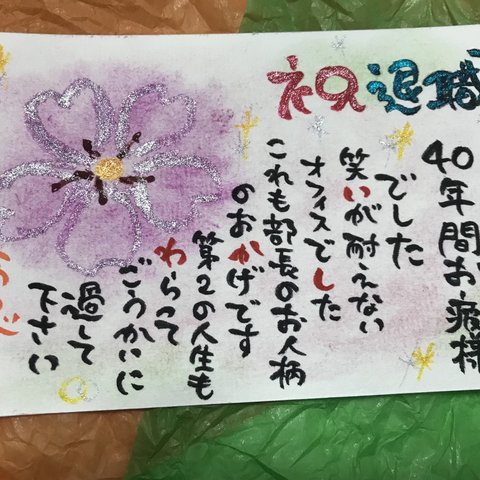 祝退職
40年間お疲様
でした
笑いが耐えない
オフィスでした
これも部長のお人柄
のおかげです
第2の人生も
わらって
ごうかいに
過して
下さい